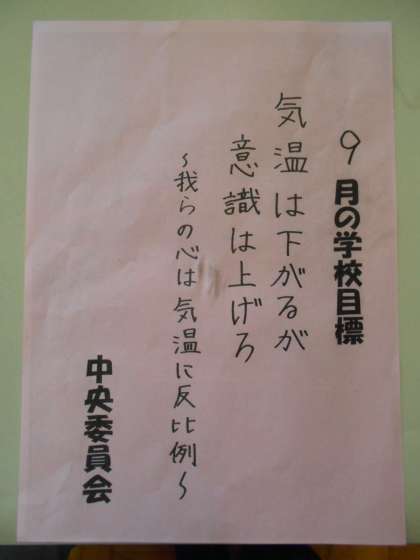 9月の学校目標
気温は下がるが
意識は上げろ
~我らの心は気温に反比例~
中央委員会